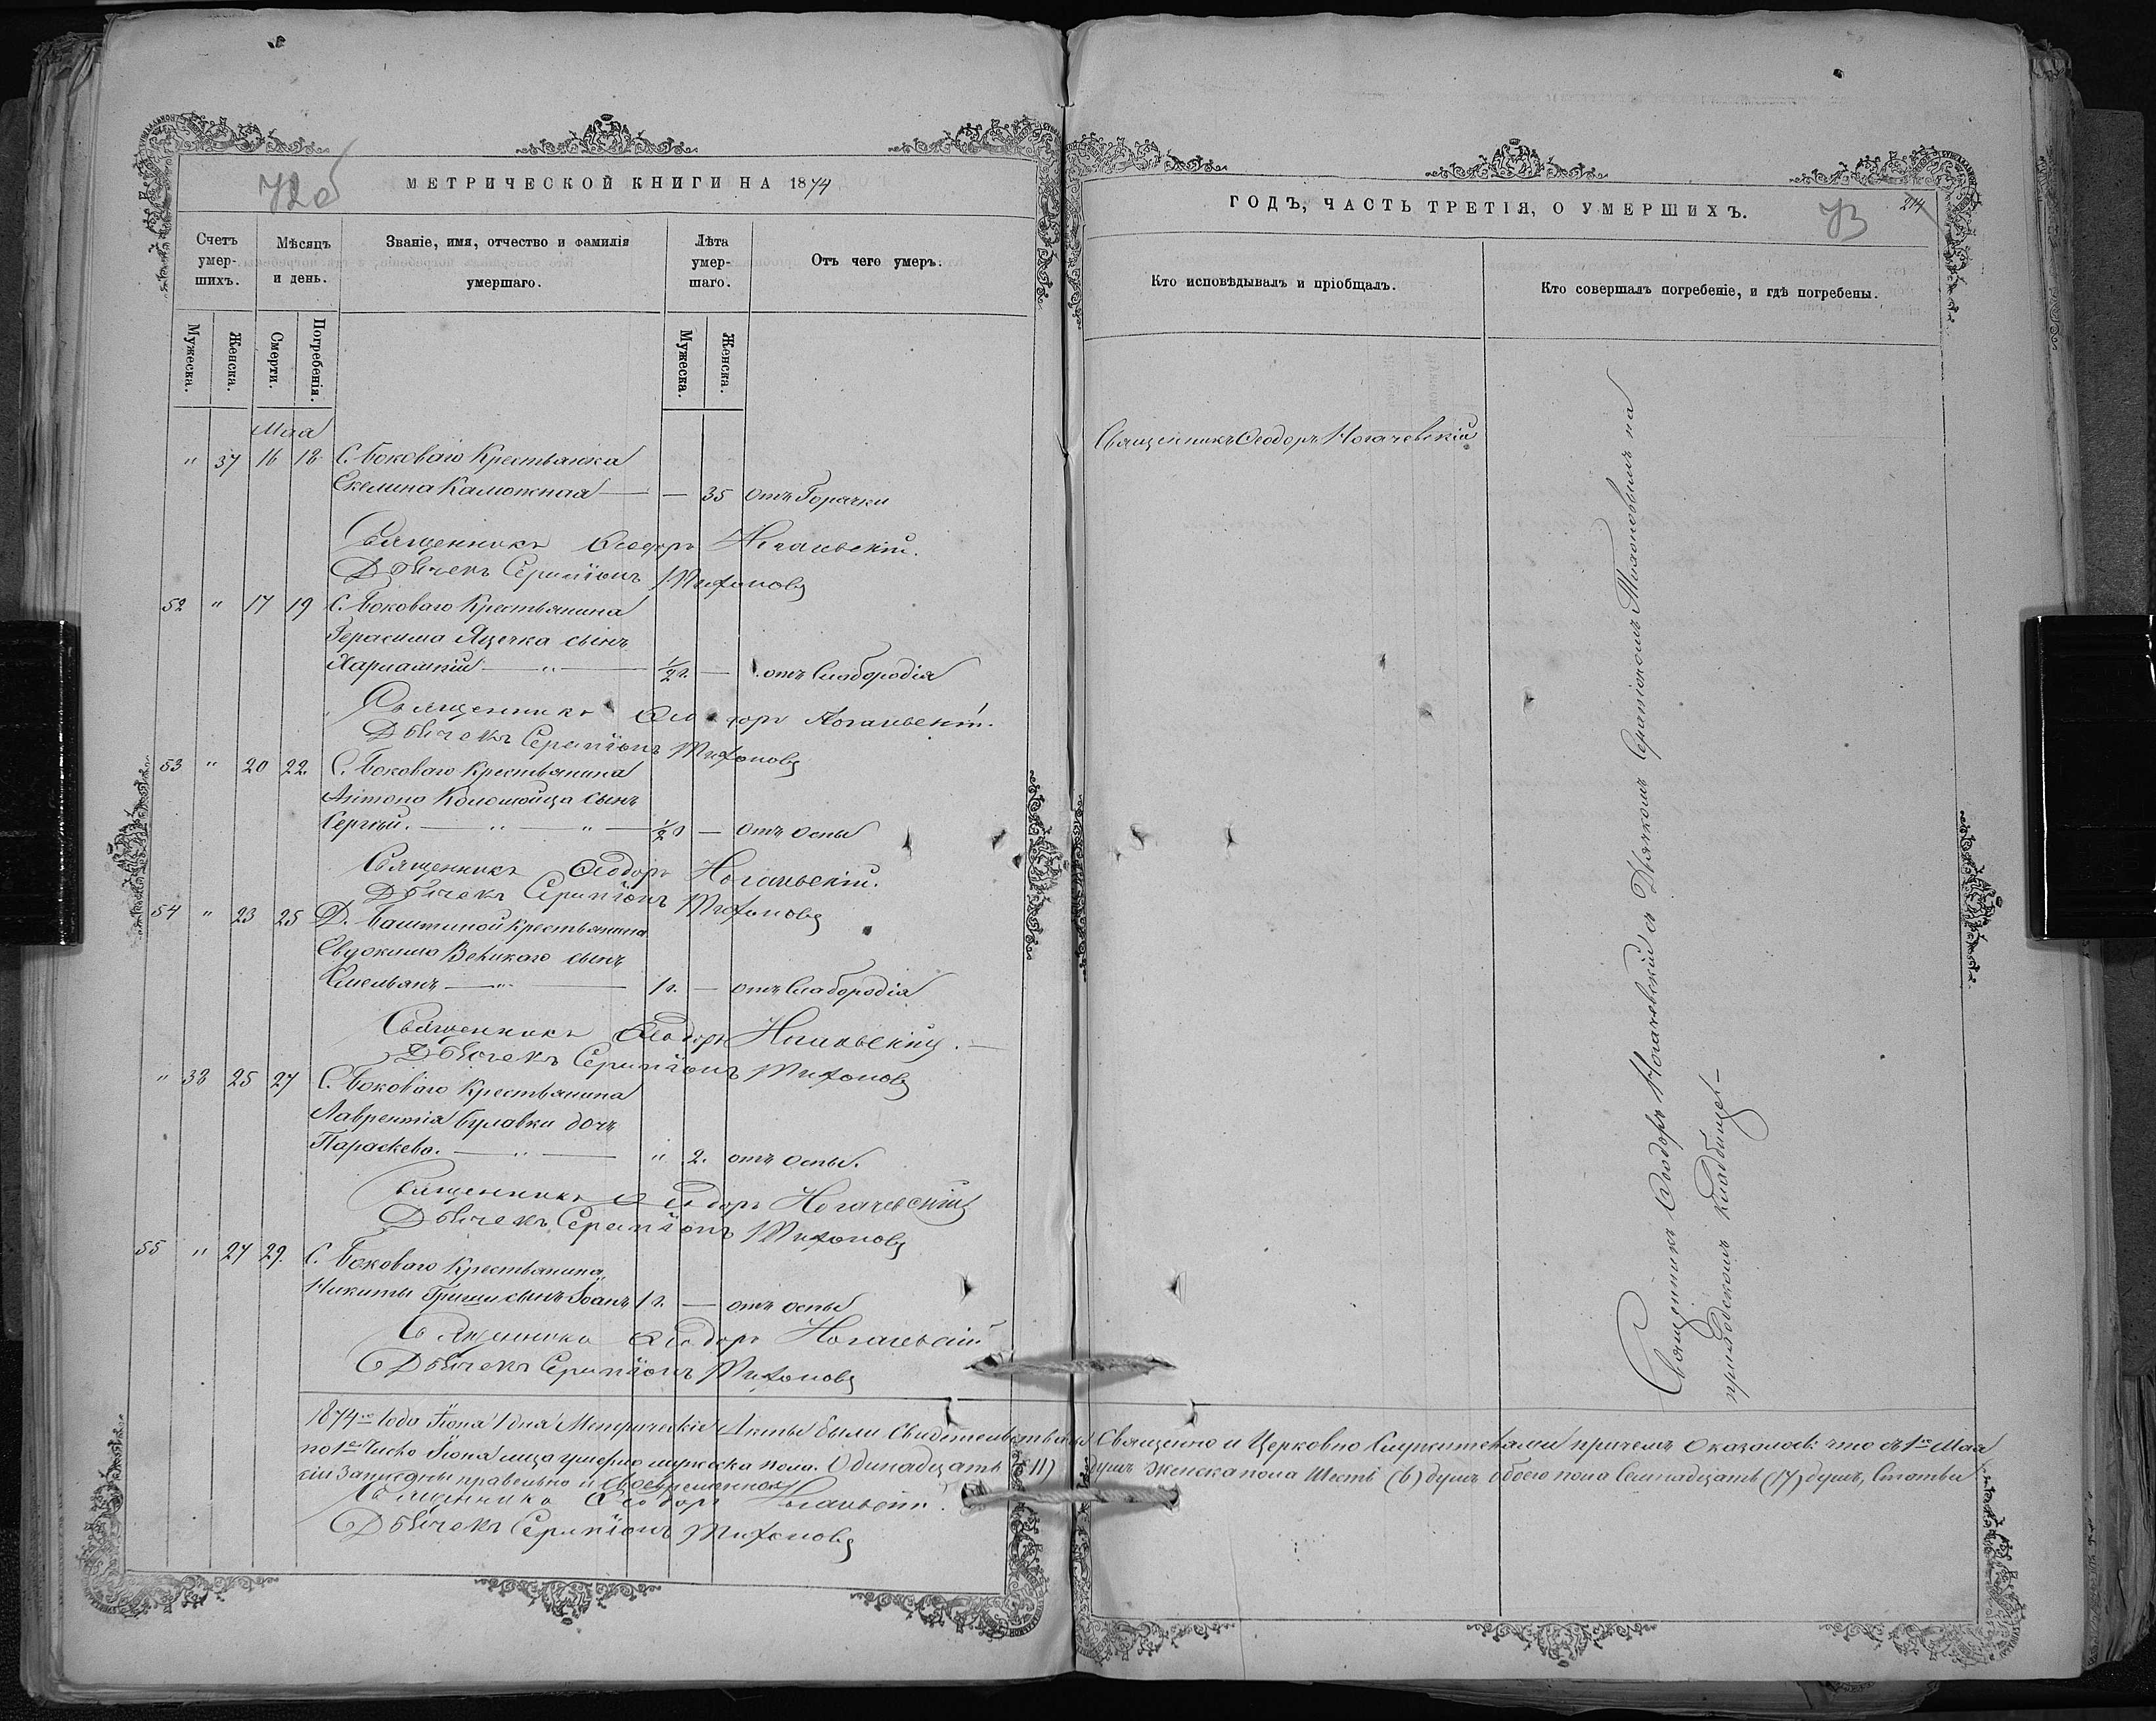 72об
МЕТРИЧЕСКОЙ КНИГИ НА 1874
Счетъ умер-шихъ.
Мѣсяцъ и день.
Званіе, имя, отчество и фамилія умершаго.
Лѣта умер-шаго.
Отъ чего умеръ.
Мужеска.
Женска.
Смерти.
Погребенія.
Мужеска.
Женска.
Мая
" 37 16 18 С. Боковаго Крестьянка
Калюжная — — 35 отъ Горячки
Священникъ Ѳеодоръ Ногачевскій.
Дьячекъ Серапіонъ Тихоновъ
52 " 17 19 С. Боковаго Крестьянина
Герасима Яценка сынъ
Харлампій — " — ½ г. — отъ Слабородія
Священникъ Ѳеодоръ Ногачевскій.
Дьячекъ Серапіонъ Тихоновъ
53 " 20 22. С. Боковаго Крестьянина
Антона Коломойца сынъ
Сергѣй. — " — " — ½ г — отъ оспы
Священникъ Ѳеодоръ Ногачевскій.
Дьячекъ Серапіонъ Тихоновъ
54 " 23 25 Д. Баштиной крестьянина
Евдокима Великаго сынъ
Емельянъ — " — 1 г. — отъ Слабородія
Священникъ Ѳеодоръ Ногачевскій. —
Дьячекъ Серапіонъ Тихоновъ
" 38 25 27 С. Боковаго Крестьянина
Лаврентія Булавки дочь
Параскева. — " — " 2. отъ оспы.
Священникъ Ѳеодоръ Ногачевскій
Дьячекъ Серапіонъ Тихоновъ
55 " 27 29. С. Боковаго Крестьянина
Никиты сынъ Іоанъ 1 г. — отъ оспы
Священникъ Ѳеодоръ Ногачевскій
Дьячекъ Серапіонъ Тихоновъ
1874го Года Іюня 1 дня Метрическіе Акты были Свидѣтельствованы
по 1е Число Іюня лица умерло мужеска пола. Одинадцать (11)
сіи Записаны правельно и своевременно
Священникъ Ѳеодоръ Ногачевскій.
Дьячекъ Серапіонъ Тихоновъ
ГОДЪ, ЧАСТЬ ТРЕТІЯ, О УМЕРШИХЪ.
73
214
Кто исповѣдывалъ и пріобщалъ.
Кто совершалъ погребеніе, и гдѣ погребены.
Священникъ Ѳеодоръ Ногачевскій
Священникъ Ѳеодоръ Ногачевскій съ Дьячкомъ Серапіономъ Тихоновымъ на
приходскомъ кладбищѣ —
Священно и Церковно Служителями причемъ Оказалось: что съ 1го Мая
душъ Женска пола Шесть (6) душъ обоего пола Семнадцать (17) душъ, Статьи